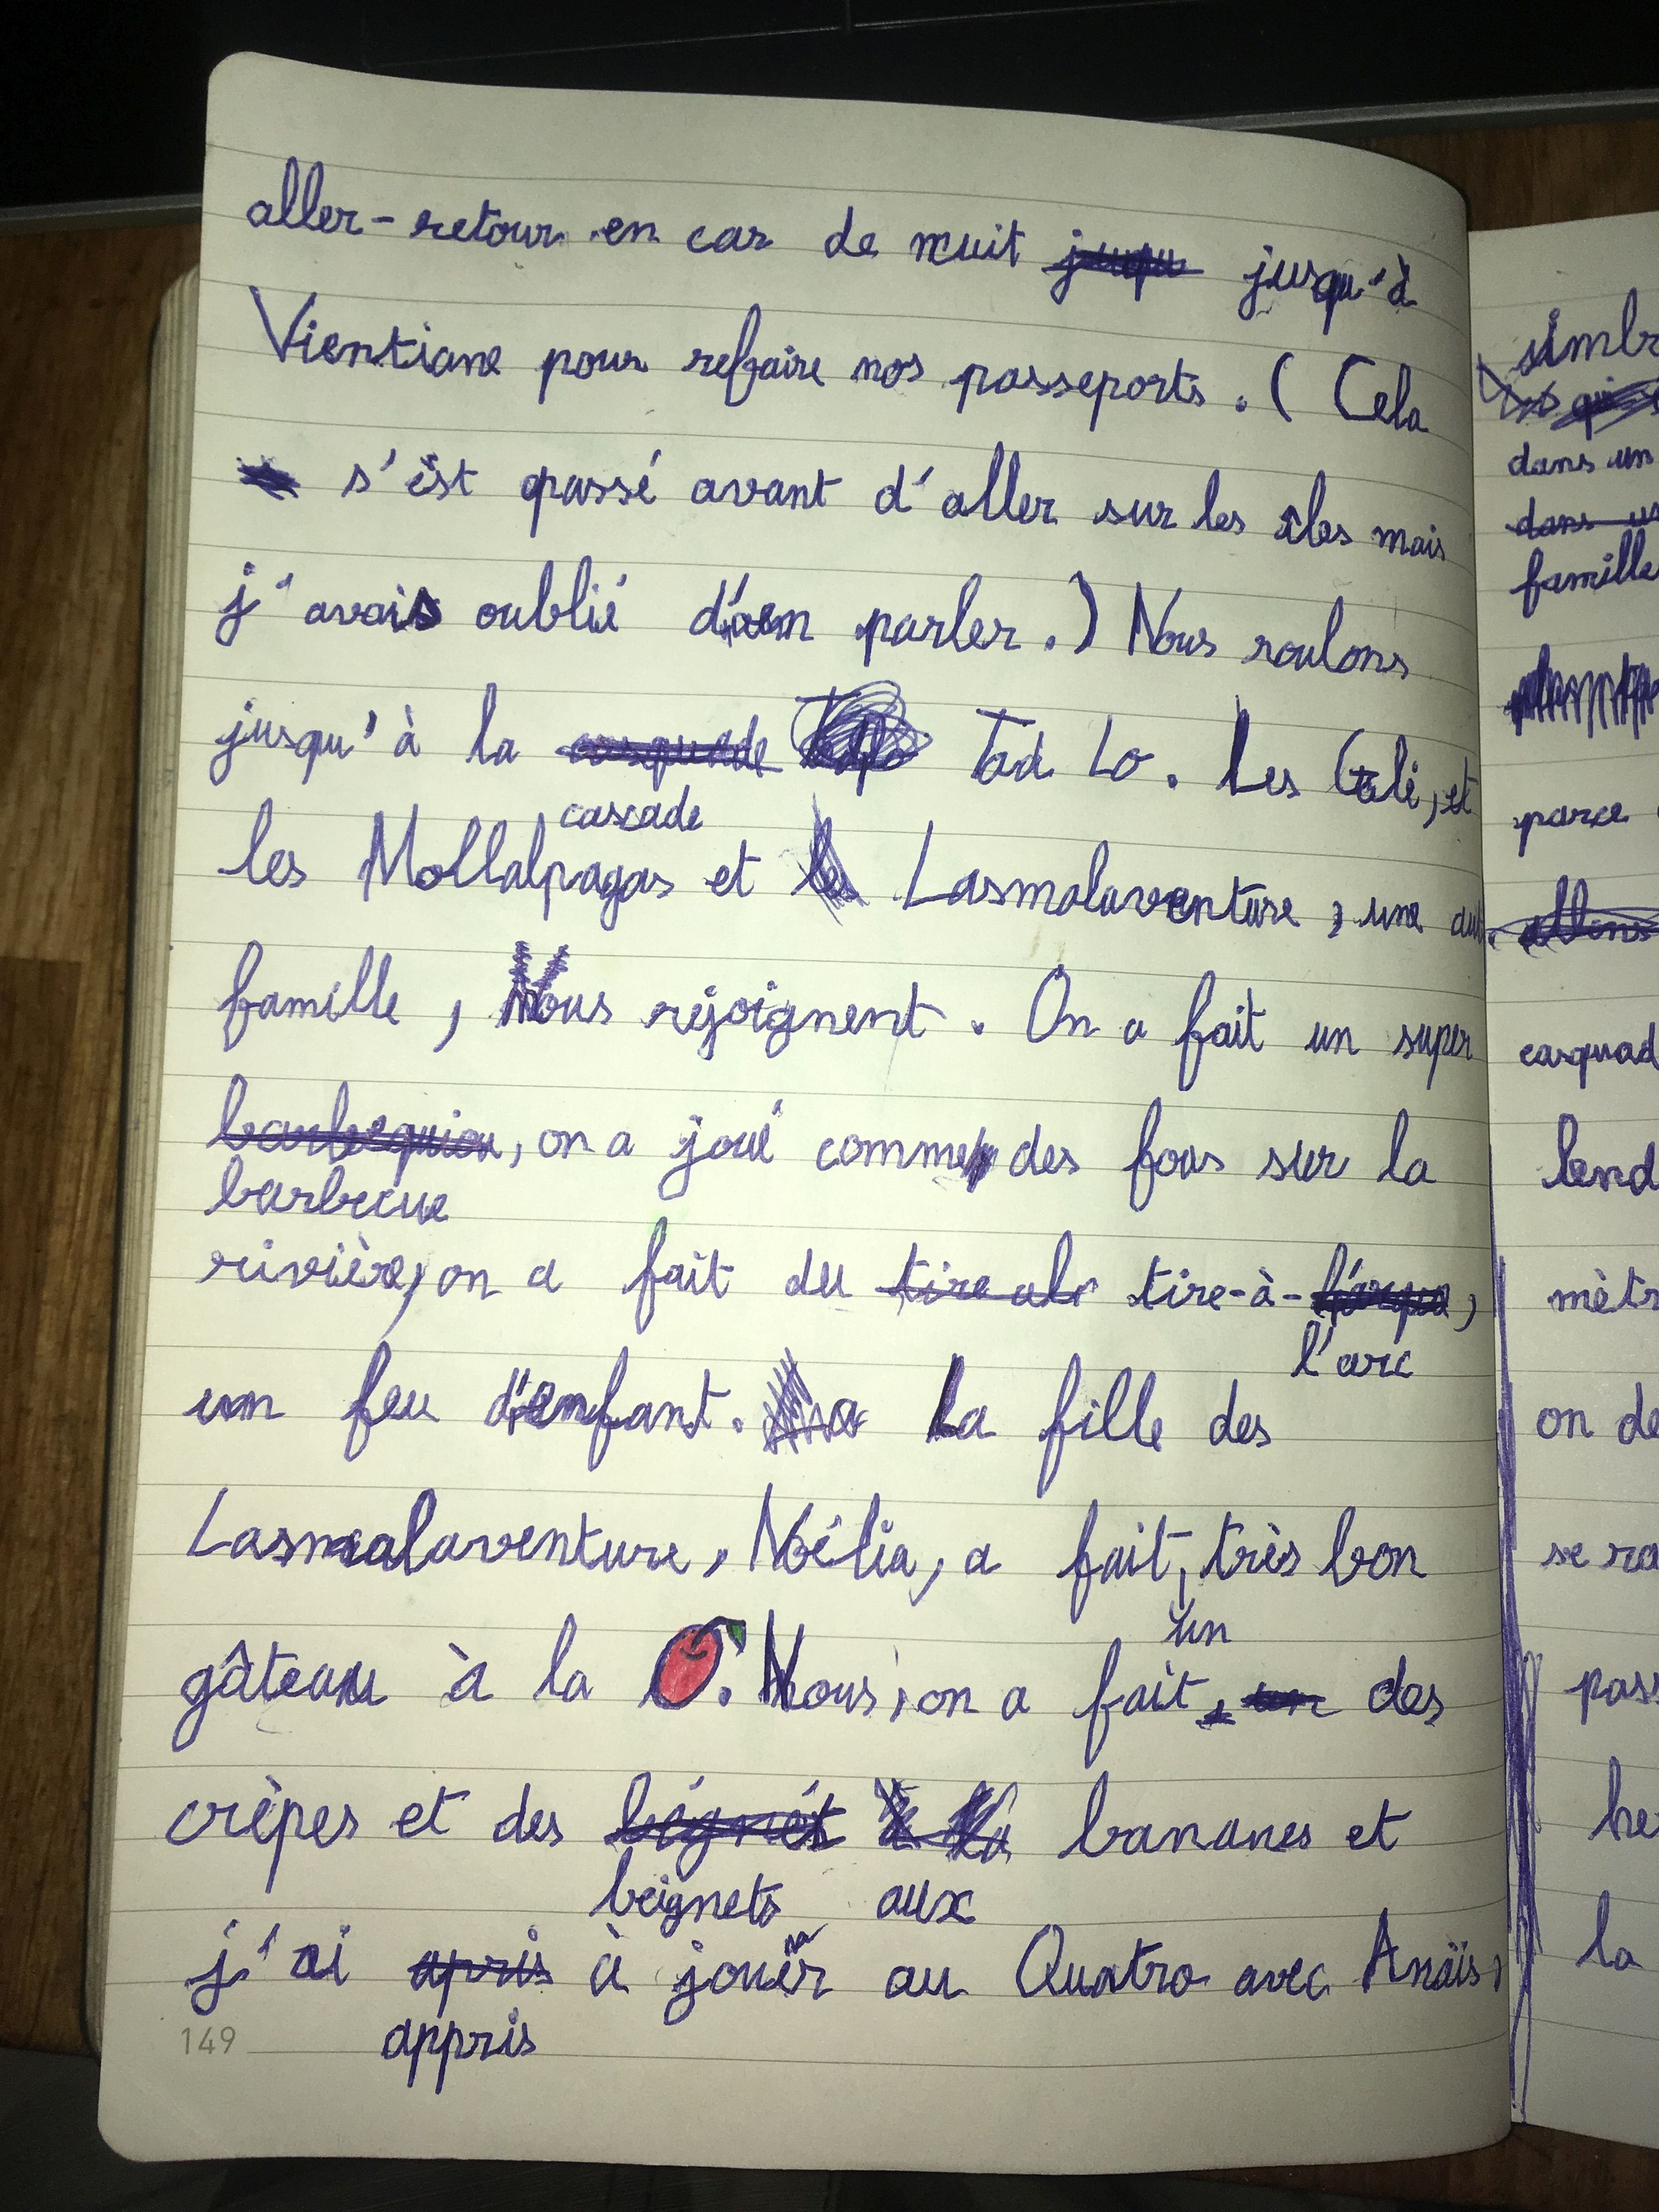 aller-retour en car de nuit jusqu'à
Vientiane pour refaire nos passeports. ( Cela
s'est passé avant d'aller sur les îles mais
j'avais oublié d'en parler.) Nous roulons
jusqu'à la Tad Lo. Les Geli, et
cascade
les Mollalpagas et Lasmalaventure, une
famille, Nous rejoignent. On a fait un super
barbequiou, on a joué comme des fous sur la
barbecue
rivière, on a fait du tire-à-
l'arc
un feu d'enfant. La fille des
Lasmalaventure, Noélia, a fait, très bon
un
gâteau à la . Nous, on a fait des
crèpes et des bégnét à la bananes et
beignets aux
j'ai apris à jouer au Quatro avec Anaïs,
appris
149
dans un
famille
parce
casquad
lend
mètr
on de
se ra
pass
he
la